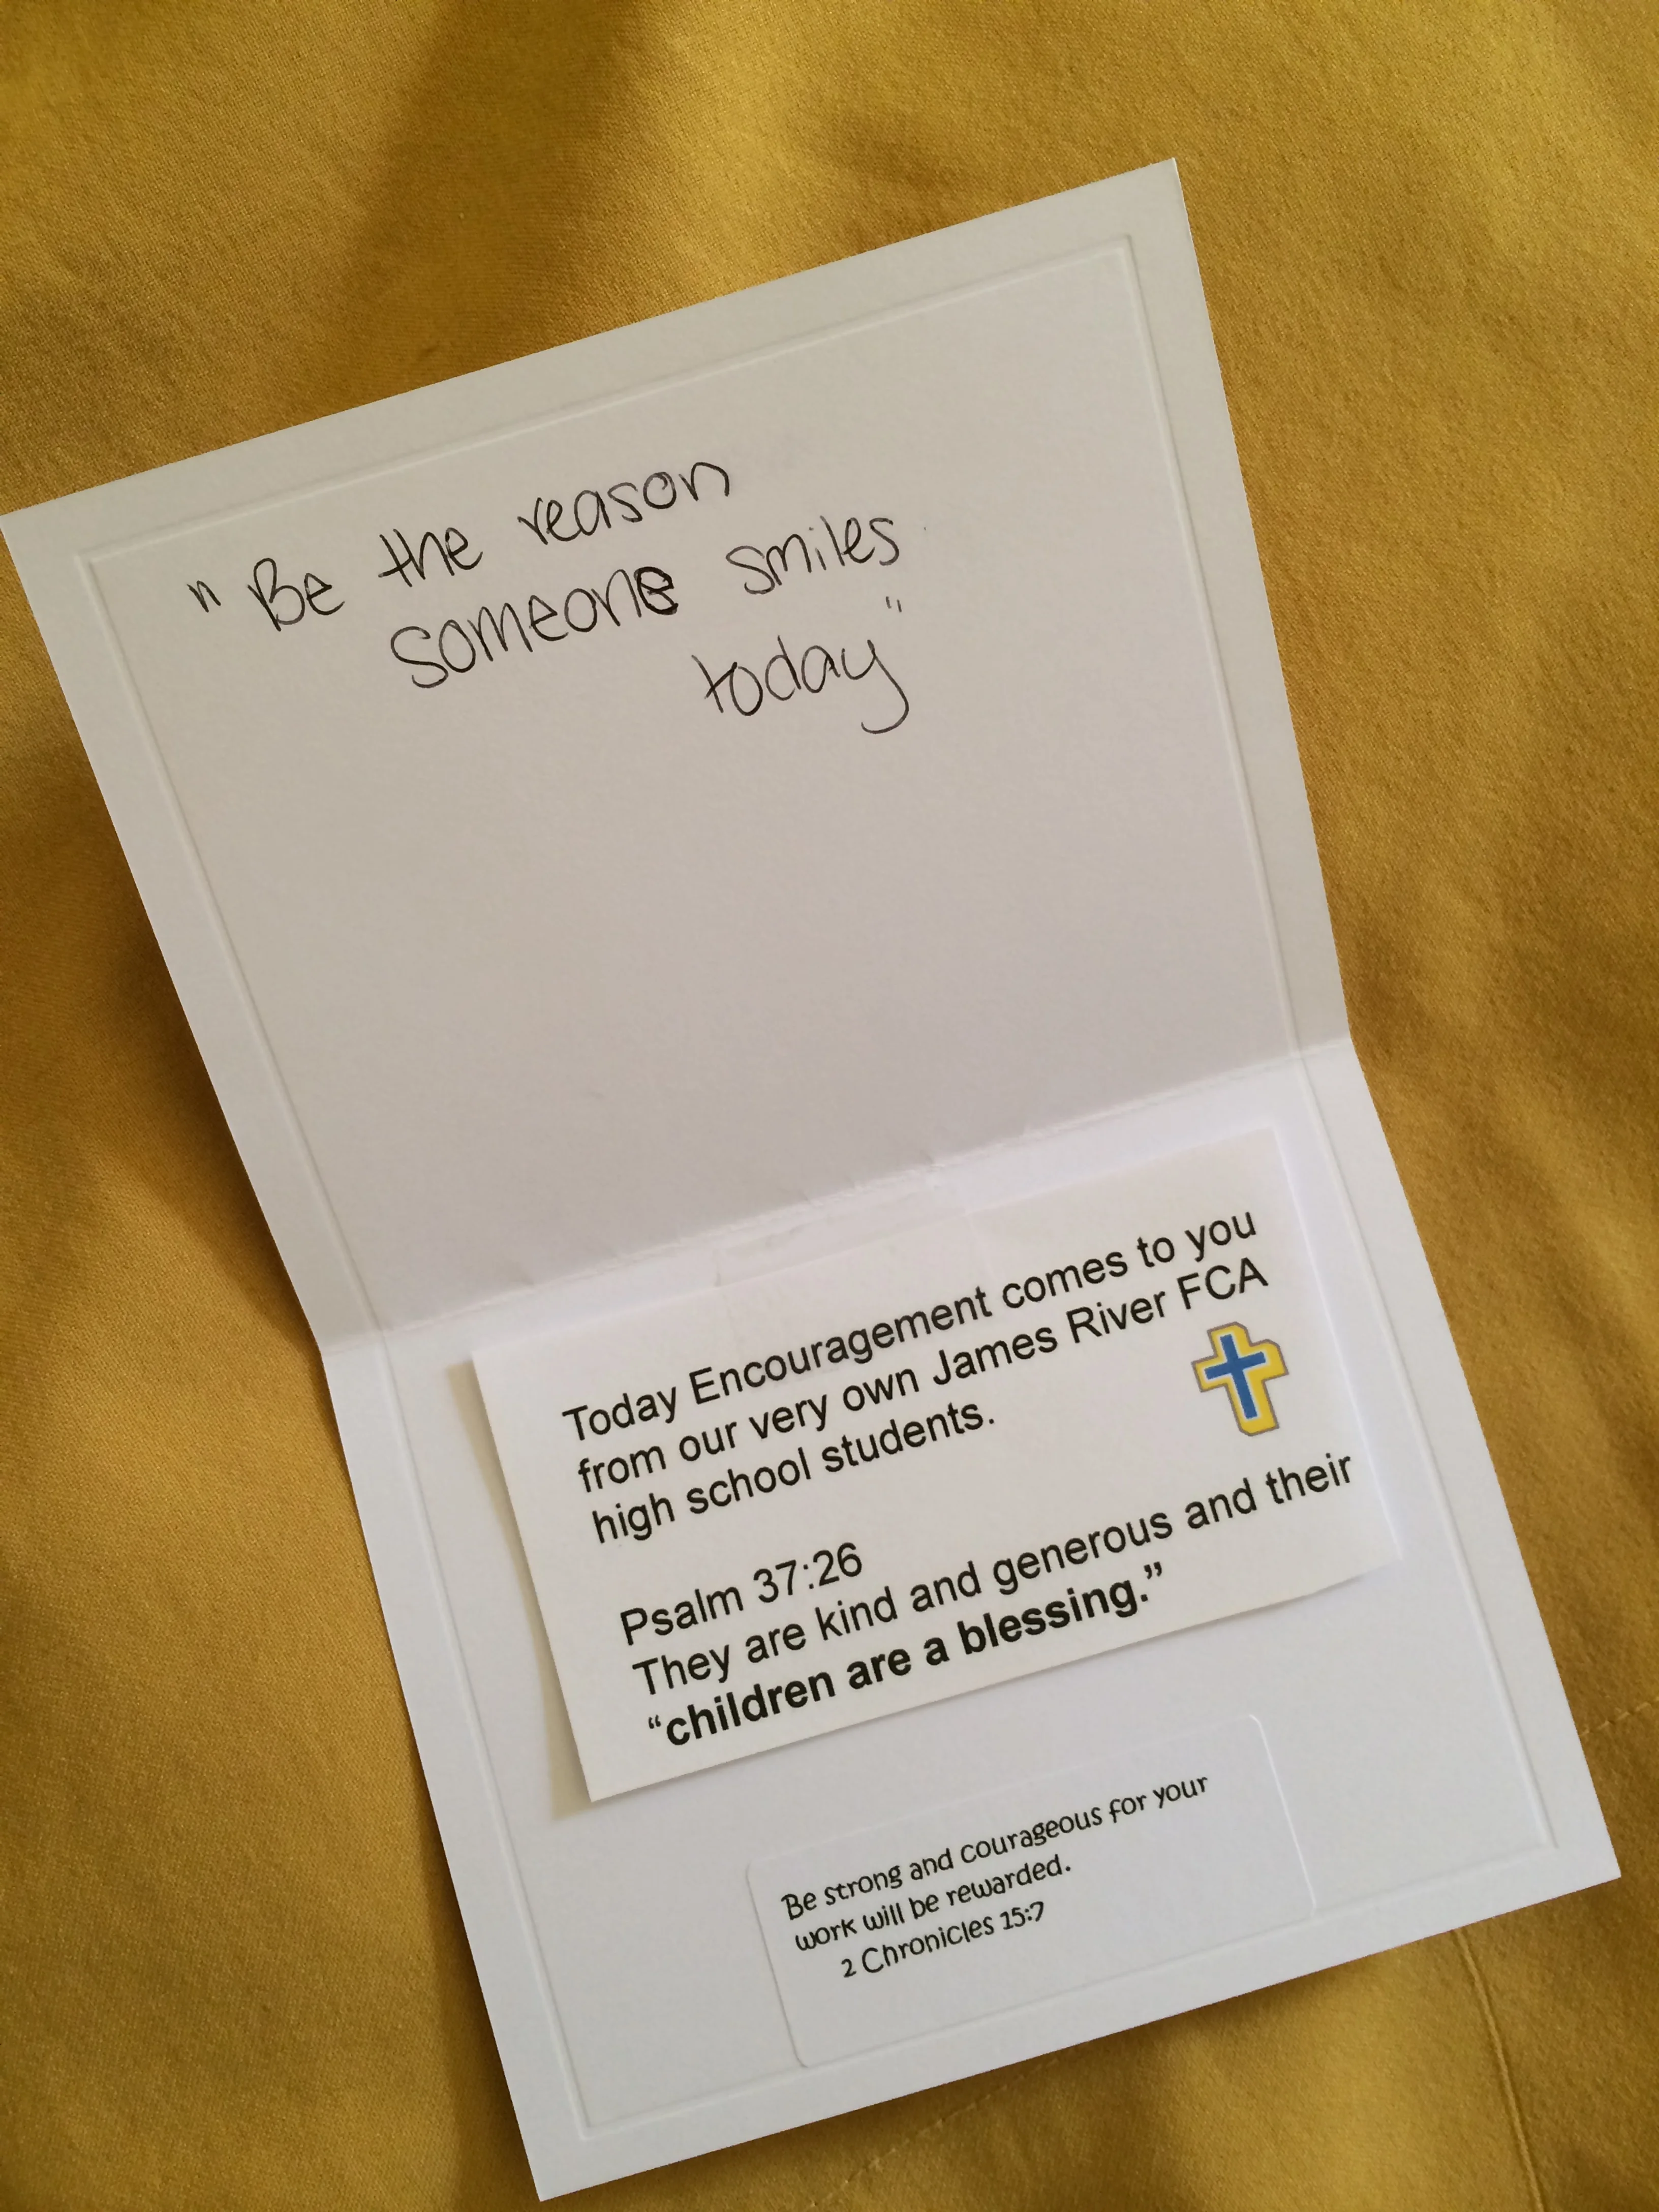 "Be the reason
someone smiles
today"
Today Encouragement comes to you
from our very own James River FCA
high school students.
Psalm 37:26
They are kind and generous and their
“children are a blessing.”
Be strong and courageous for your
work will be rewarded.
2 Chronicles 15:7